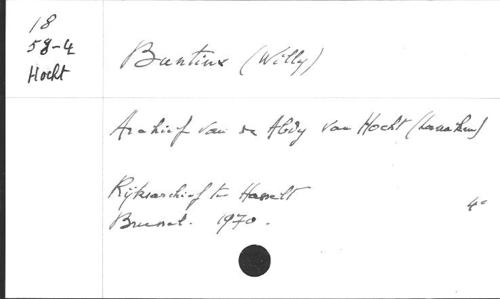 18
58-4
Hocht
Buntinx (Willy)
Archief van de Abdij van Hocht (Lanaken)
Rijksarchief te Hasselt
4°
Brussel. 1970.